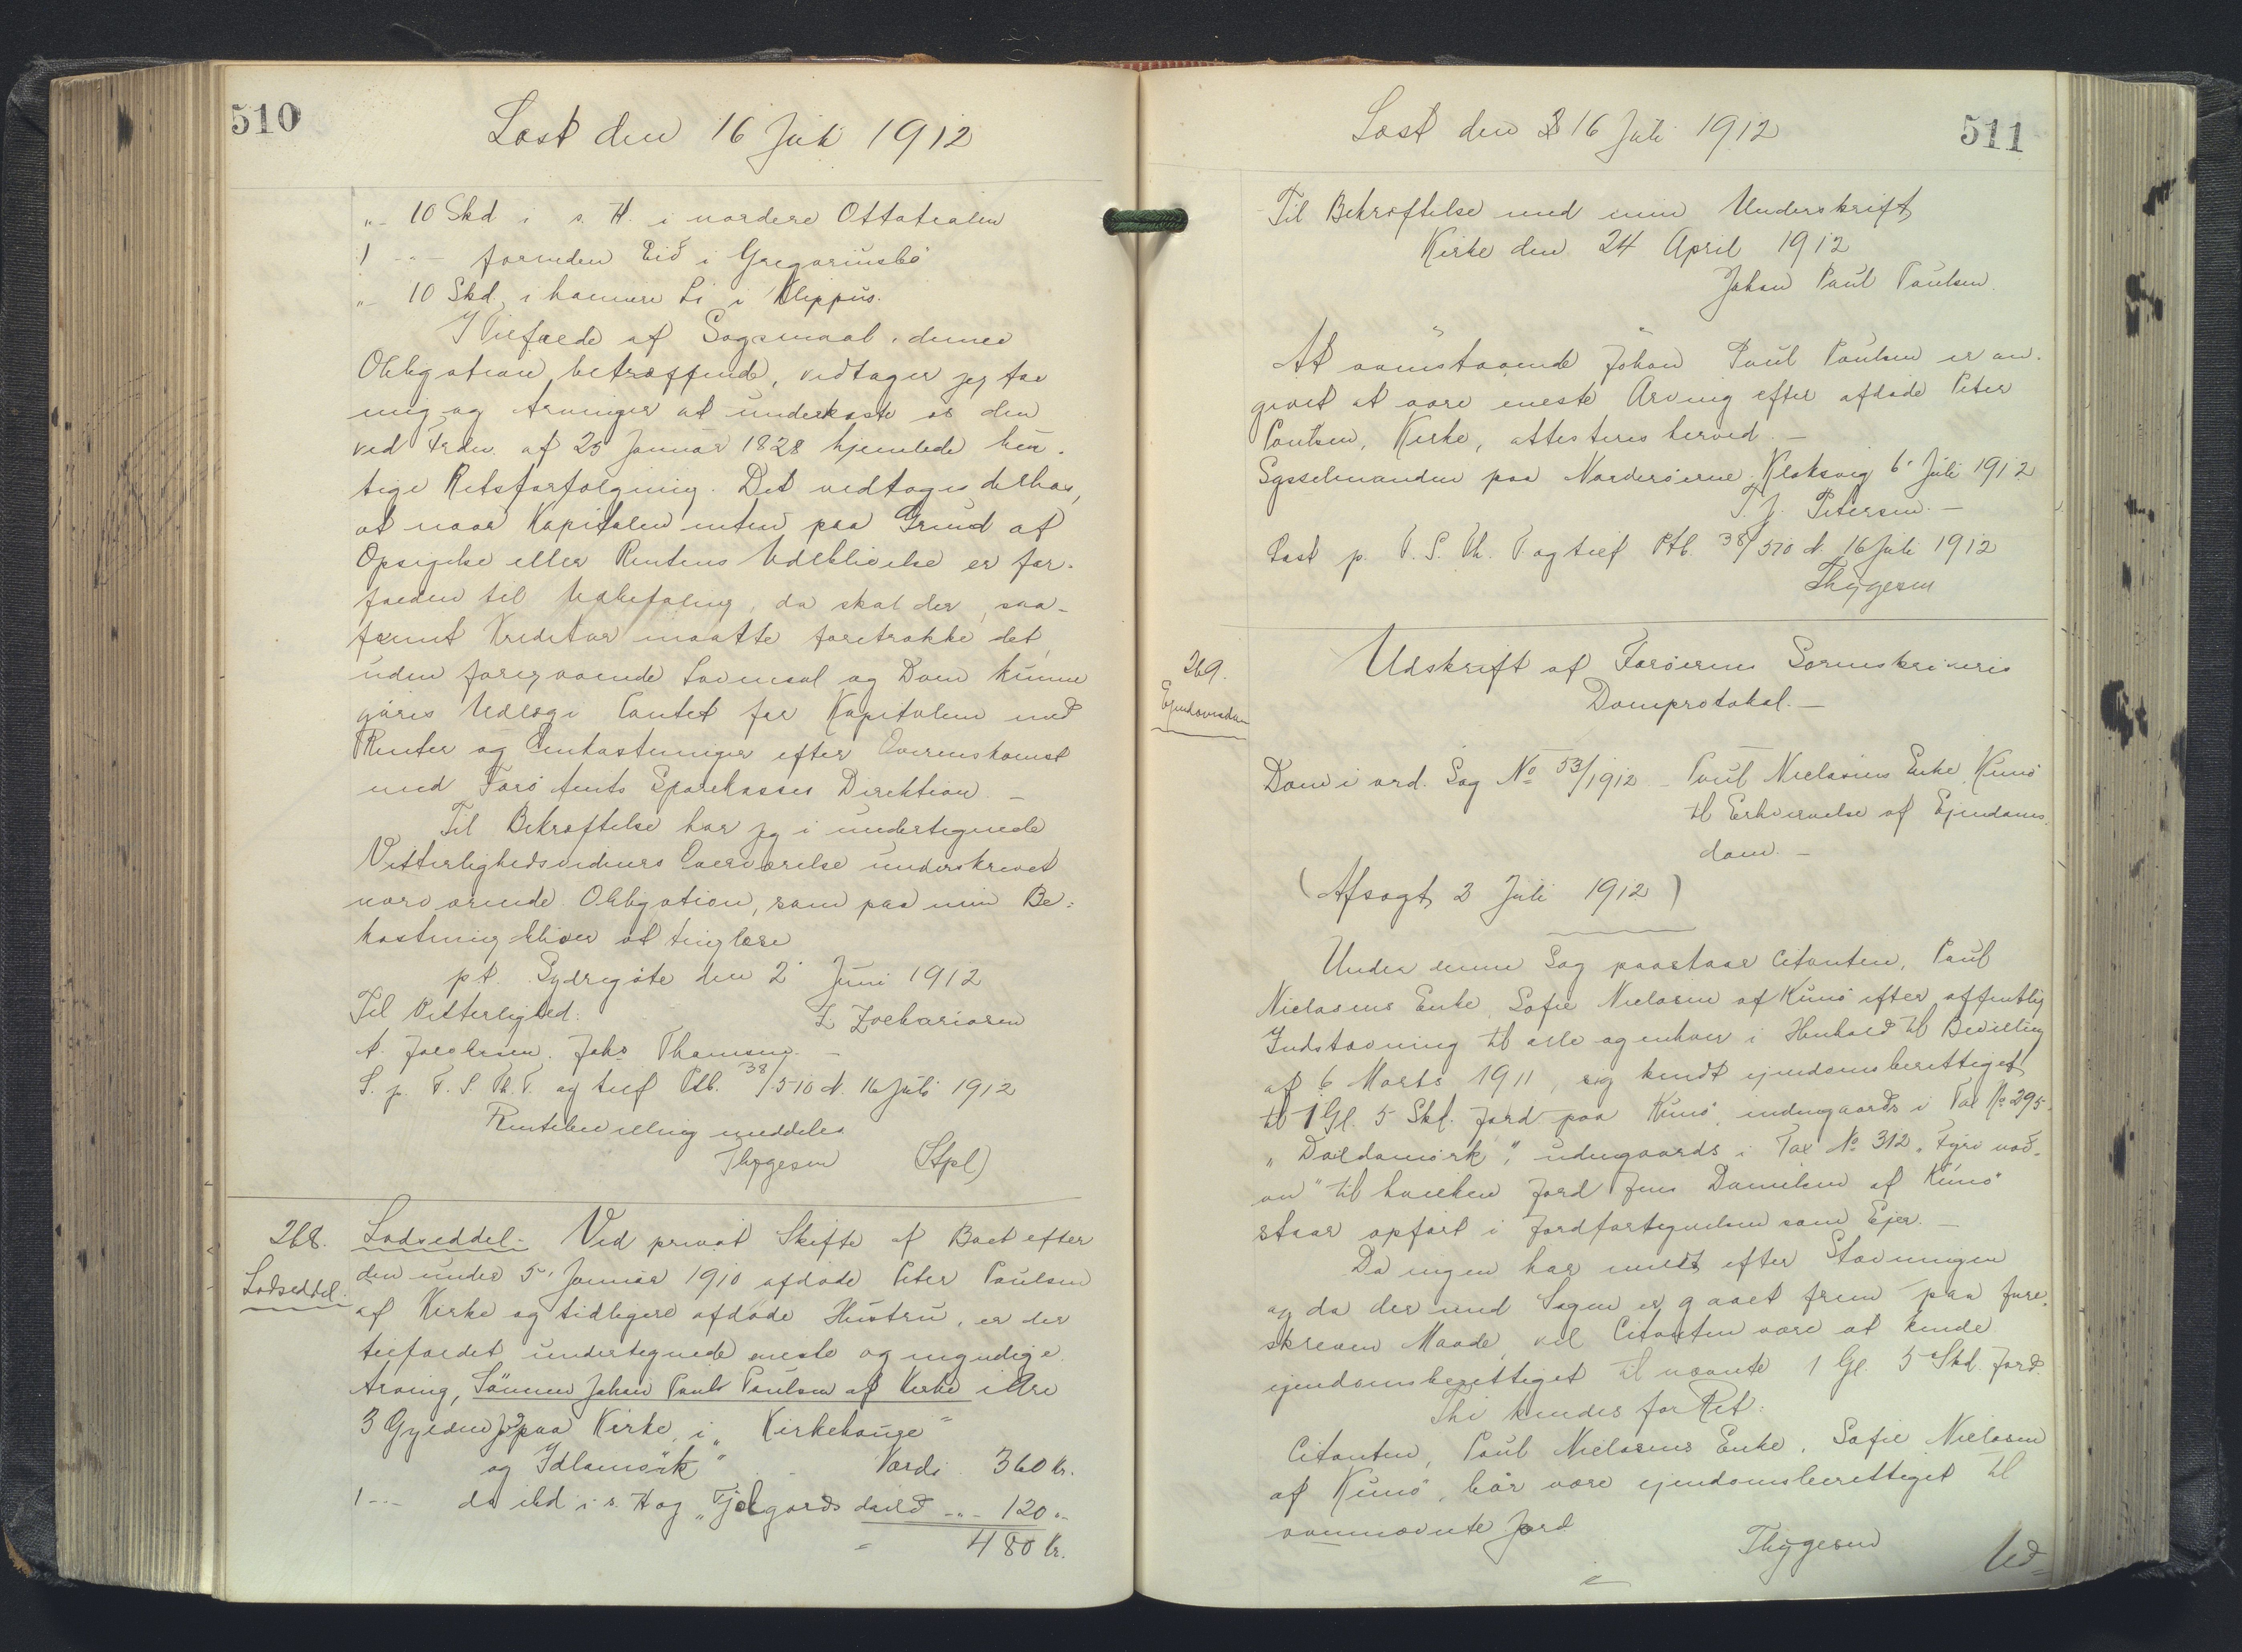 510
Læst den 16 Juli 1912
"- 10 Skd i s. H. i nordere Ottatialen
1 -"- forneden Eid i Gregoriusbö
"- 10 Skd i hamere Li i Kleppus.
I Tilfælde af Søgsmaal, denne
Obligation betræffende, vedtager jeg for
mig og Arvinger at underkaste os den
ved Frdn. af 25 Januar 1828 hjemlede hur-
tige Retsforfølgning. Det vedtages derhos,
at naar Kapitalen enten paa Grund af
Opsigelse eller Rentens Udeblivelse er for-
falden til Udbetaling, da skal der, saa-
fremt Kreditor maatte foretrække det,
uden foregaaende Lovmaal og Dom kunne
gøres Udlæg i Pantet for Kapitalen med
Renter og Omkostninger efter Overenskomst
med Færø Amts Sparekasses Direktion. -
Til Bekræftelse har jeg i undertegnede
Vitterlighedsvidners Overværelse underskrevet
nærværende Obligation, som paa min Be=
kostning bliver at tinglæse
pt. Sydregøte den 2' Juni 1912
Til Vitterlighed: Z Zachariasen
A. Jacobsen. Johs Thomsen. -
L. p. F. S. Th. T. og tilf Ptb. 38/510 d. 16 Juli 1912
Rentebevilling meddeles
Thygesen (Stpl)
268.
Lodseddel.
Lodseddel.- Ved privat Skifte af Boet efter
den under 5' Januar 1910 afdøde Peter Poulsen
af Kirke og tidligere afdøde Hustru, er der
tilfaldet undertegnede eneste og myndige
Arving, Sønnen Johan Paul Poulsen af Kirke i Arv
3 Gylden Jd paa Kirke, i "Kirkehauge"
og Idlamørk" Værdi 360 Kr.
1 -"- do ibd i s. H og "Tjalgards daild -"- 120 "-
480 Kr.
511
Læst den 16 Juli 1912
Til Bekræftelse med min Underskrift
Kirke den 24 April 1912
Johan Paul Poulsen.
At ovenstaaende Johan Paul Poulsen er an-
givet at være eneste Arving efter afdøde Peter
Poulsen, Kirke, attesteres herved. -
Sysselmanden paa Norderøerne. Klaksvig 6' Juli 1912
T. J. Petersen. -
Læst p. F. S. Th. T og tilf Ptb. 38/510 d. 16 Juli 1912
Thygesen
269.
Ejendomsdom
Udskrift af Færøernes Sorenskriveris
Domprotokol. -
Dom i ord. Sag No 53/1912 - Poul Nielasens Enke, Kunø
til Erhvervelse af Ejendoms-
dom. -
(Afsagt 2 Juli 1912)
Under denne Sag paastaar Citanten, Poul
Nielasens Enke, Sofie Nielasen af Kunø efter offentlig
Indstævning til alle og enhver i Henhold til Bevilling
af 6 Marts 1911, sig kendt ejendomsberettiget
til 1 Gl. 5 Skd. Jord paa Kunø, indengaards i Tax No 295
"Daildamørk", udengaards i Tax No 312 "Fyri nod-
an" til hvilken Jord Jens Danielsen af Kunø
staar opført i Jordfortegnelsen som Ejer. -
Da ingen har mødt efter Stævningen
og da der med Sagen er gaaet frem paa fore-
skreven Maade, vil Citanten være at kende
ejendomsberettiget til nævnte 1 Gl 5 Skd. Jord.
Thi kendes for Ret:
Citanten, Poul Nielasens Enke, Sofie Nielasen
af Kunø, bør være ejendomsberettiget til
ovennævnte Jord
Thygesen
Ud=